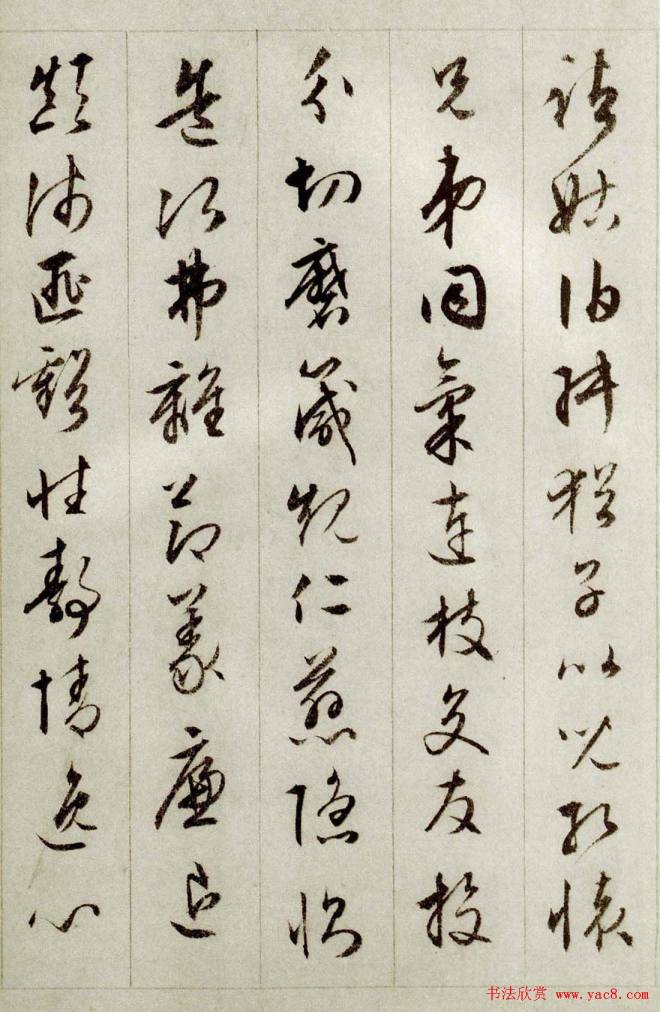 諸姑伯叔猶子比兒孔懷
兄弟同氣連枝交友投
分切磨箴規仁慈隱惻
造次弗離節義廉退
顛沛匪虧性靜情逸心
书法欣赏 www.yac8.com